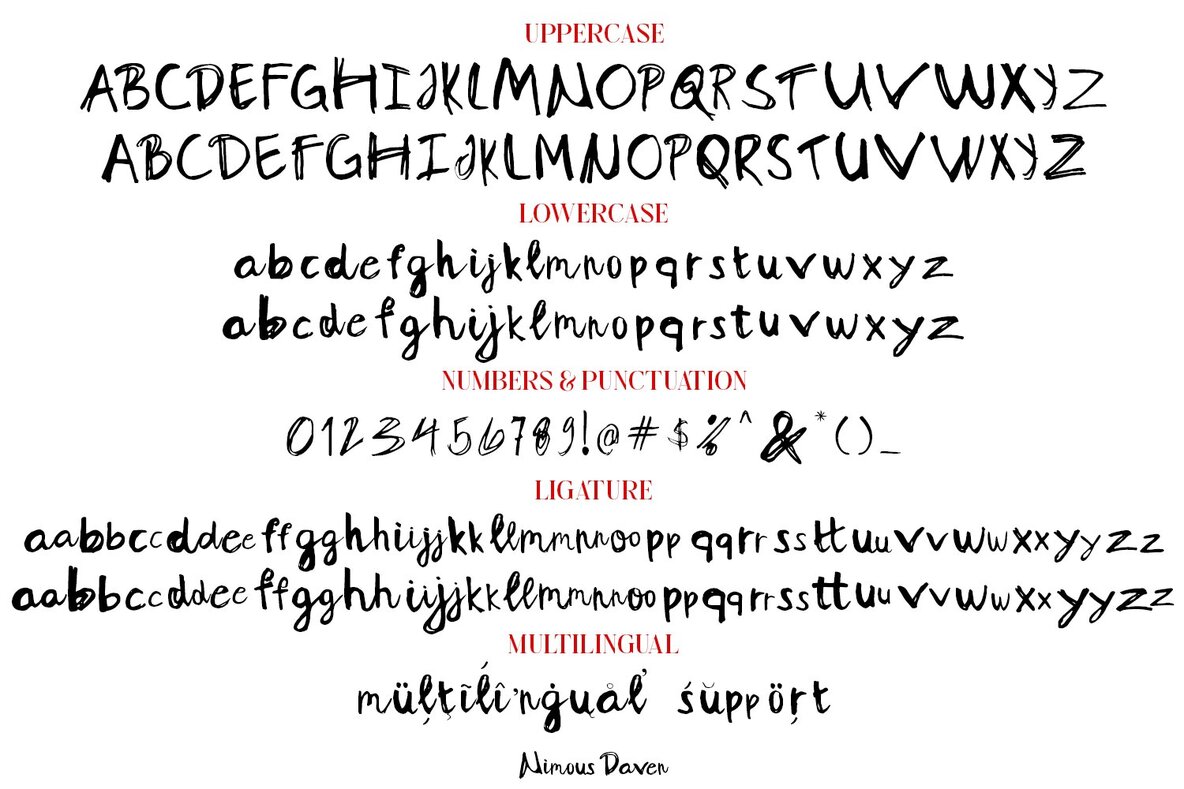 UPPERCASE
ABCDEFGHIJKLMNOPQRSTUVWXYZ
ABCDEFGHIJKLMNOPQRSTUVWXYZ
LOWERCASE
abcdefghijklmnopqrstuvwxyz
abcdefghijklmnopqrstuvwxyz
NUMBERS & PUNCTUATION
0123456789!@#$%^&*()_
LIGATURE
aabbccddeeffgghhiijjkkllmmnnooppqqrrssttuuvvwwxxyyzz
aabbccddeeffgghhiijjkkllmmnnooppqqrrssttuuvvwwxxyyzz
MULTILINGUAL
müļţĩĺîŉġųåľ śŭppöŗt
Nimous Daven